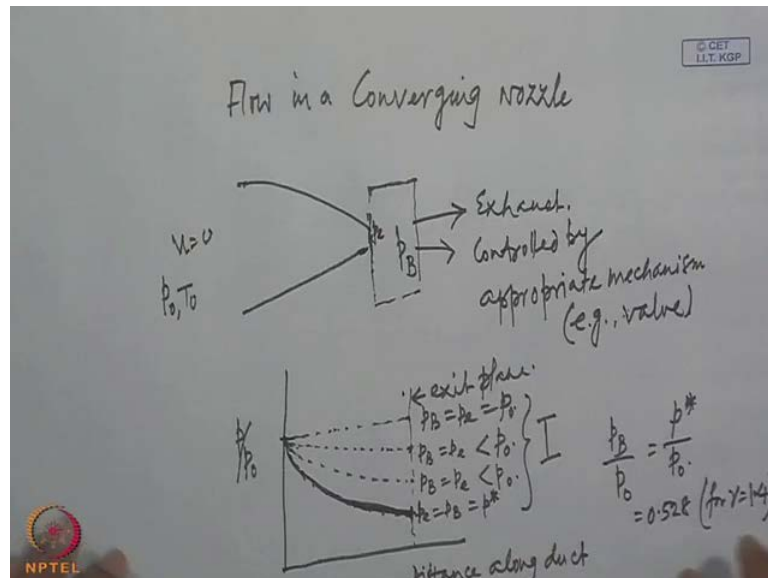 © CET
I.I.T. KGP
Flow in a Converging Nozzle
u=0
p₀, T₀
pₑ
p_B
Exhaust.
Controlled by
appropriate mechanism
(e.g., valve)
exit plane.
p/p₀
p_B = pₑ = p₀.
p_B = pₑ < p₀.
p_B = pₑ < p₀.
pₑ = p_B = p*
I
p_B/p₀ = p*/p₀.
= 0.528 (for γ=1.4)
distance along duct
NPTEL